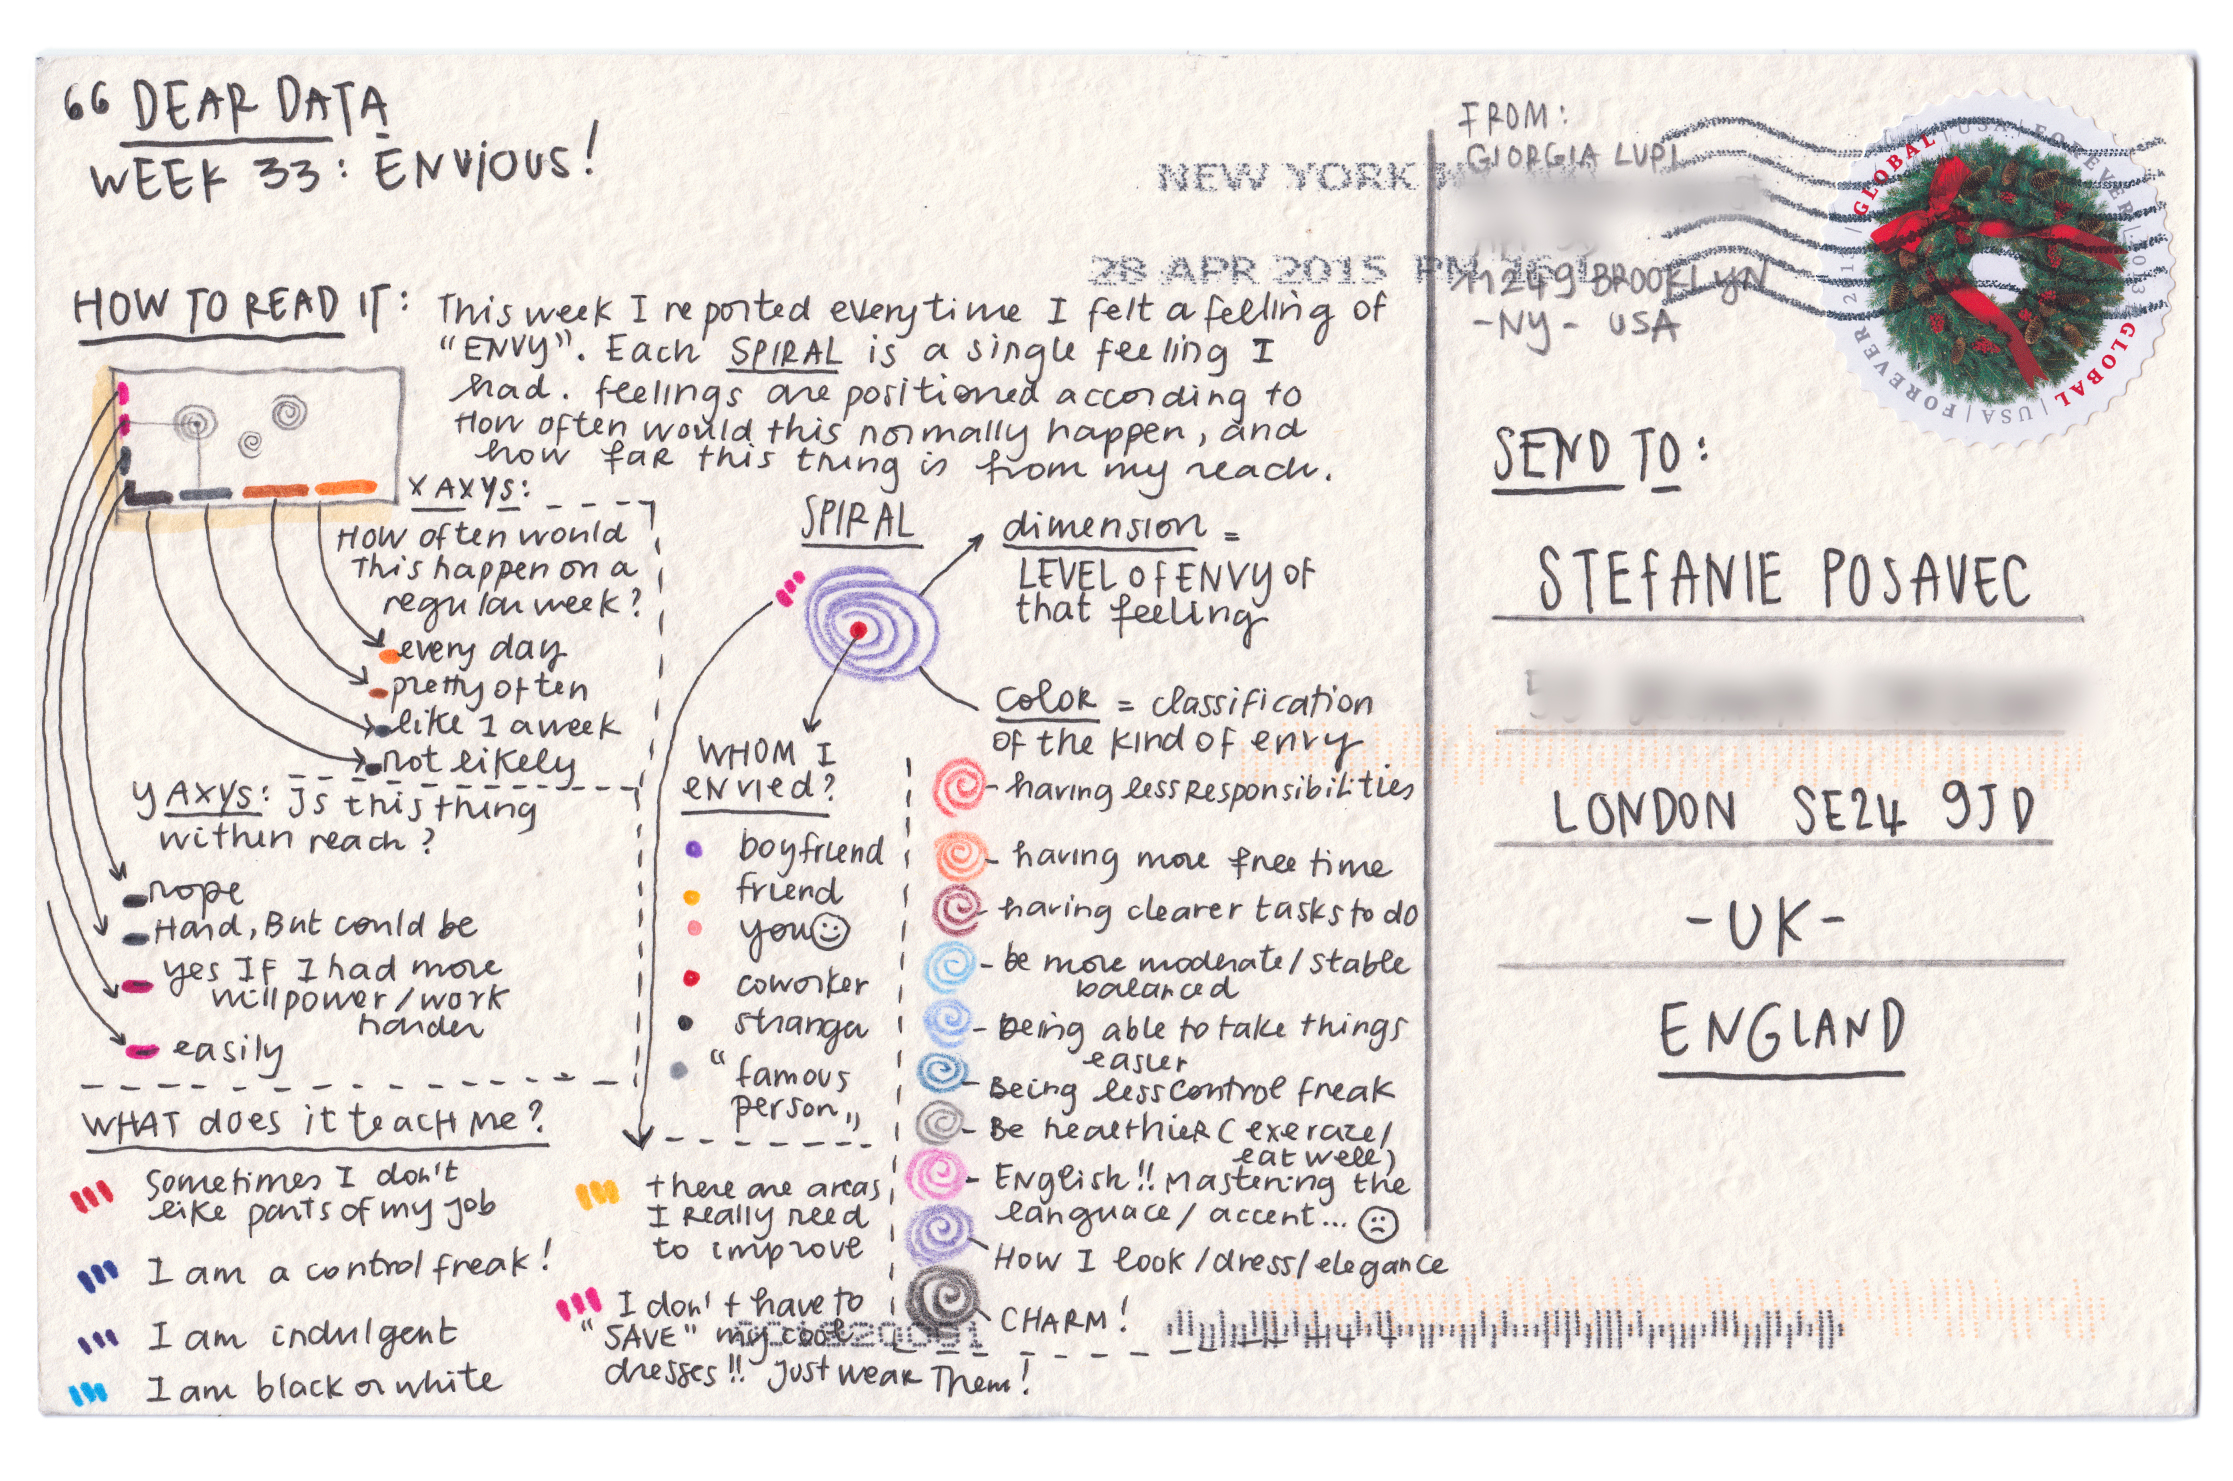 66 DEAR DATA
WEEK 33: ENVIOUS!
HOW TO READ IT:
This week I reported everytime I felt a feeling of
"ENVY". Each SPIRAL is a single feeling I
had. feelings are positioned according to
How often would this normally happen, and
how far this thing is from my reach.
X AXYS:
How often would
this happen on a
regular week?
every day
pretty often
like 1 a week
not likely
Y AXYS: Is this thing
within reach?
nope
Hard, But could be
yes IF I had more
willpower/work
harder
easily
SPIRAL
dimension =
LEVEL of ENVY of
that feeling
COLOR = classification
of the kind of envy
WHOM I
ENVIED?
boyfriend
friend
you
coworker
stranger
"famous
person"
- having less Responsibilities
- having more free time
- having clearer tasks to do
- be more moderate/stable
balanced
- being able to take things
easier
- Being less control freak
- Be healthier (exercize/
eat well)
- English!! Mastering the
language/accent...
How I look/dress/elegance
CHARM!
WHAT does it teach Me?
Sometimes I don't
like parts of my job
I am a control freak!
I am indulgent
I am black or white
there are areas
I Really need
to improve
I don't have to
"SAVE" my cool
dresses!! Just wear Them!
NEW YORK
28 APR 2015 PM
FROM:
GIORGIA LUPI
11249 BROOKLYN
-NY- USA
GLOBAL | USA | FOREVER
GLOBAL | USA | FOREVER
SEND TO:
STEFANIE POSAVEC
LONDON SE24 9JD
-UK-
ENGLAND